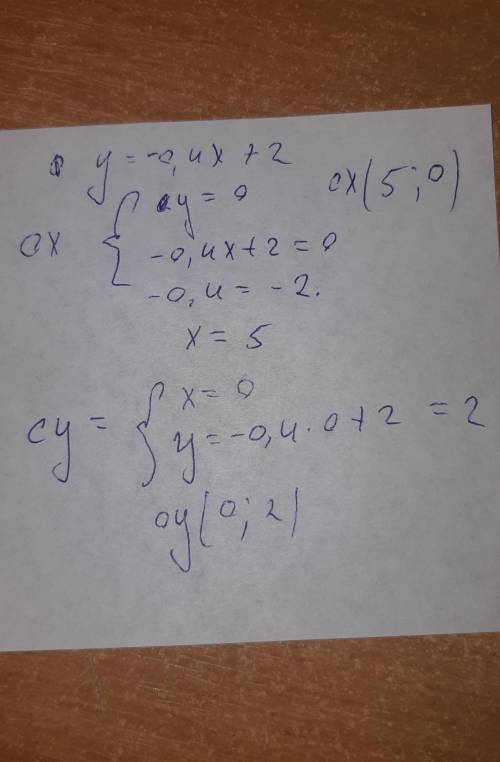 y = -0,4x + 2
ox { y = 0
-0,4x + 2 = 0
-0,4 = -2.
x = 5
ox (5; 0)
oy = { x = 0
y = -0,4 · 0 + 2 = 2
oy (0; 2)